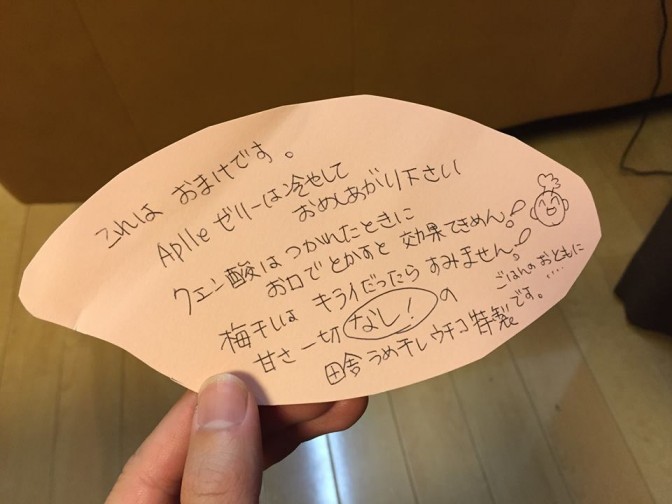 これは おまけです。
Aplle ゼリーは冷やして
おめしあがり下さい
クエン酸は つかれたときに
お口でとかすと 効果てきめん!
梅干しは キライだったら すみません!
甘さ一切 なし! の ごはんのおともに....
田舎うめ干し ウチコ特製です。